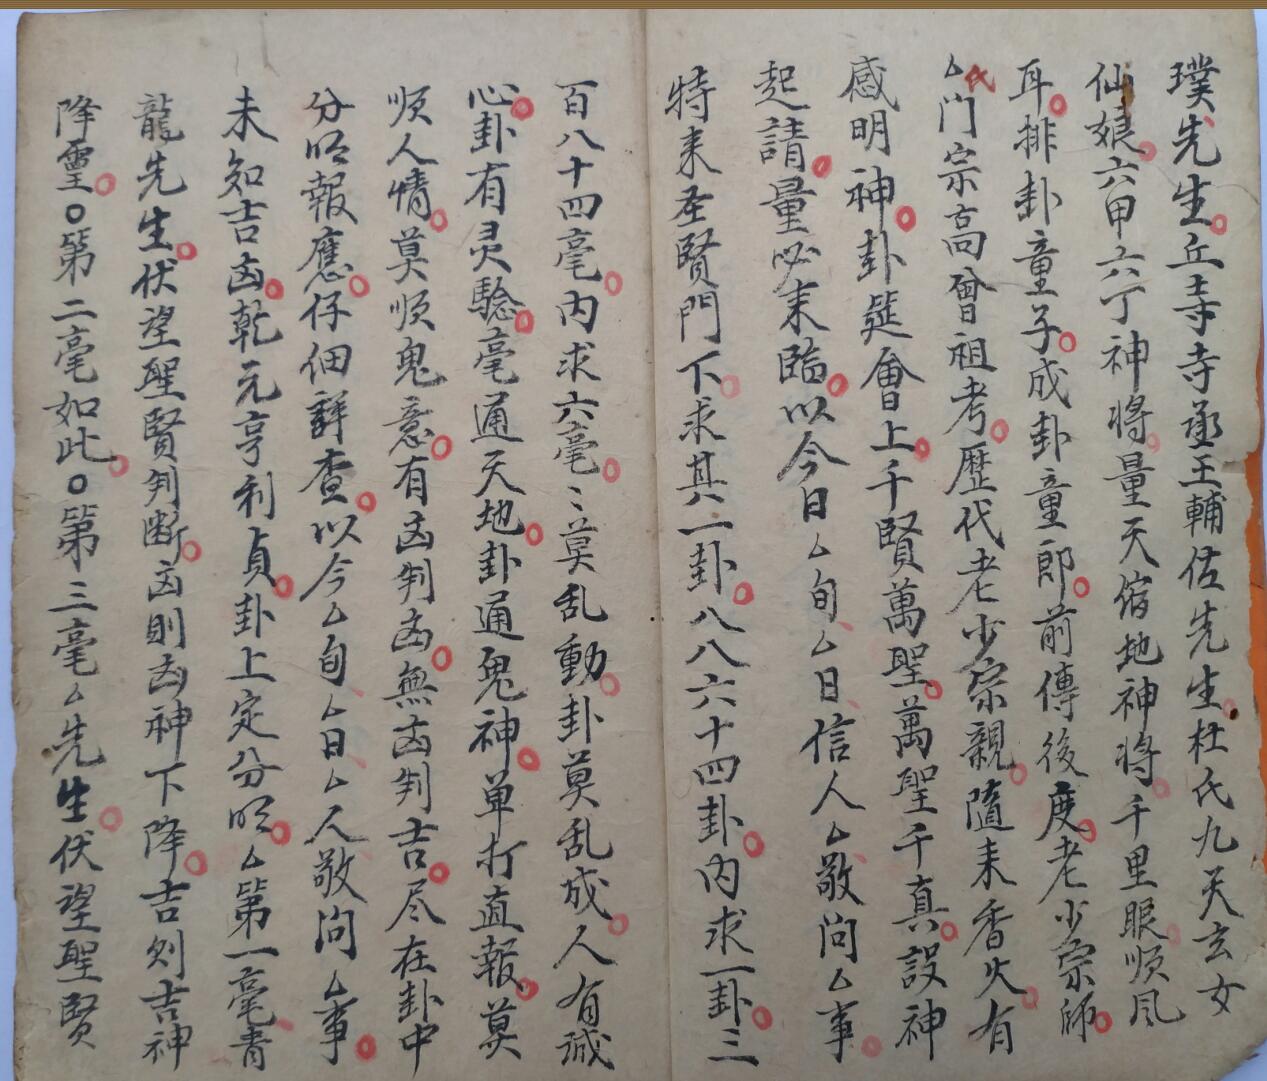 璞先生丘寺寺丞王輔佐先生杜氏九天玄女
仙娘六甲六丁神将量天宿地神将千里眼順风
耳排卦童子成卦童郎前傳後度老少宗師
厶氏门宗高曾祖考歷代老少宗親隨来香火有
感明神卦筵會上千賢萬聖萬聖千真設神
起請量必来臨以今日厶旬厶日信人厶敬问厶事
特来圣賢門下求其一卦八八六十四卦内求一卦三
百八十四毫内求六毫〻莫乱動卦莫乱成人有誠
心卦有灵驗毫通天地卦通鬼神单打直報莫
順人情莫順鬼意有凶判凶無凶判吉尽在卦中
分明報應仔细詳查以今厶旬厶日厶人敬问厶事
未知吉凶乾元亨利貞卦上定分明厶第一毫青
龍先生伏望聖賢判断凶則凶神下降吉则吉神
降靈〇第二毫如此〇第三毫厶先生伏望聖賢